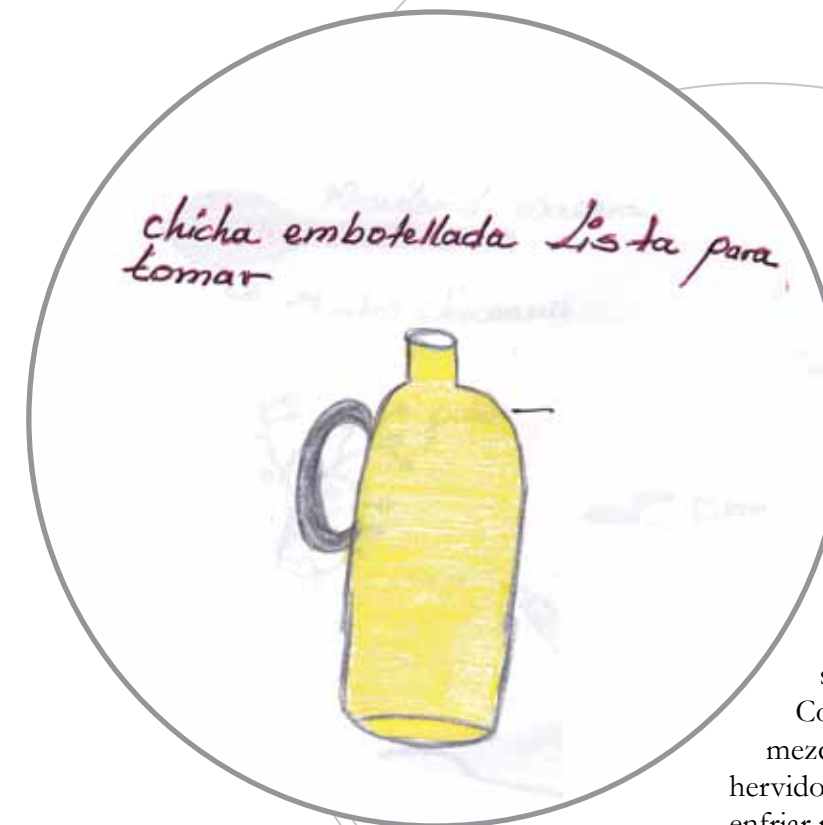 chicha embotellada Lista para
tomar
Co
mezc
hervido
enfriar